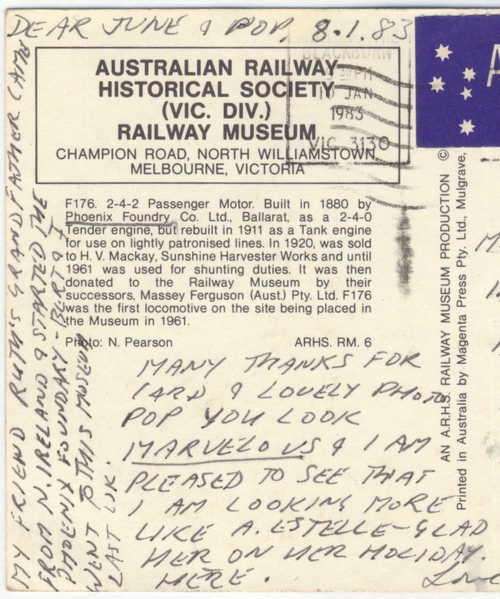 DEAR JUNE & POP, 8.1.83
AUSTRALIAN RAILWAY
HISTORICAL SOCIETY
(VIC. DIV.)
RAILWAY MUSEUM
CHAMPION ROAD, NORTH WILLIAMSTOWN,
MELBOURNE, VICTORIA
BLACKBURN
PM
JAN
1983
VIC. 3130
A
F176. 2-4-2 Passenger Motor. Built in 1880 by
Phoenix Foundry Co. Ltd., Ballarat, as a 2-4-0
Tender engine, but rebuilt in 1911 as a Tank engine
for use on lightly patronised lines. In 1920, was sold
to H. V. Mackay, Sunshine Harvester Works and until
1961 was used for shunting duties. It was then
donated to the Railway Museum by their
successors, Massey Ferguson (Aust.) Pty. Ltd. F176
was the first locomotive on the site being placed in
the Museum in 1961.
Photo: N. Pearson ARHS. RM. 6
MANY THANKS FOR
CARD & LOVELY PHOTO
POP YOU LOOK
MARVELOUS & I AM
PLEASED TO SEE THAT
I AM LOOKING MORE
LIKE A. ESTELLE - GLAD
HER ON HER HOLIDAY.
HERE.
Love
MY FRIEND RUTH'S GRANDFATHER CAME
FROM N. IRELAND & STARTED THE
PHOENIX FOUNDARY - BERT & I
WENT TO THIS MUSEUM
LAST WK.
AN A.R.H.S. RAILWAY MUSEUM PRODUCTION ©
Printed in Australia by Magenta Press Pty. Ltd., Mulgrave,